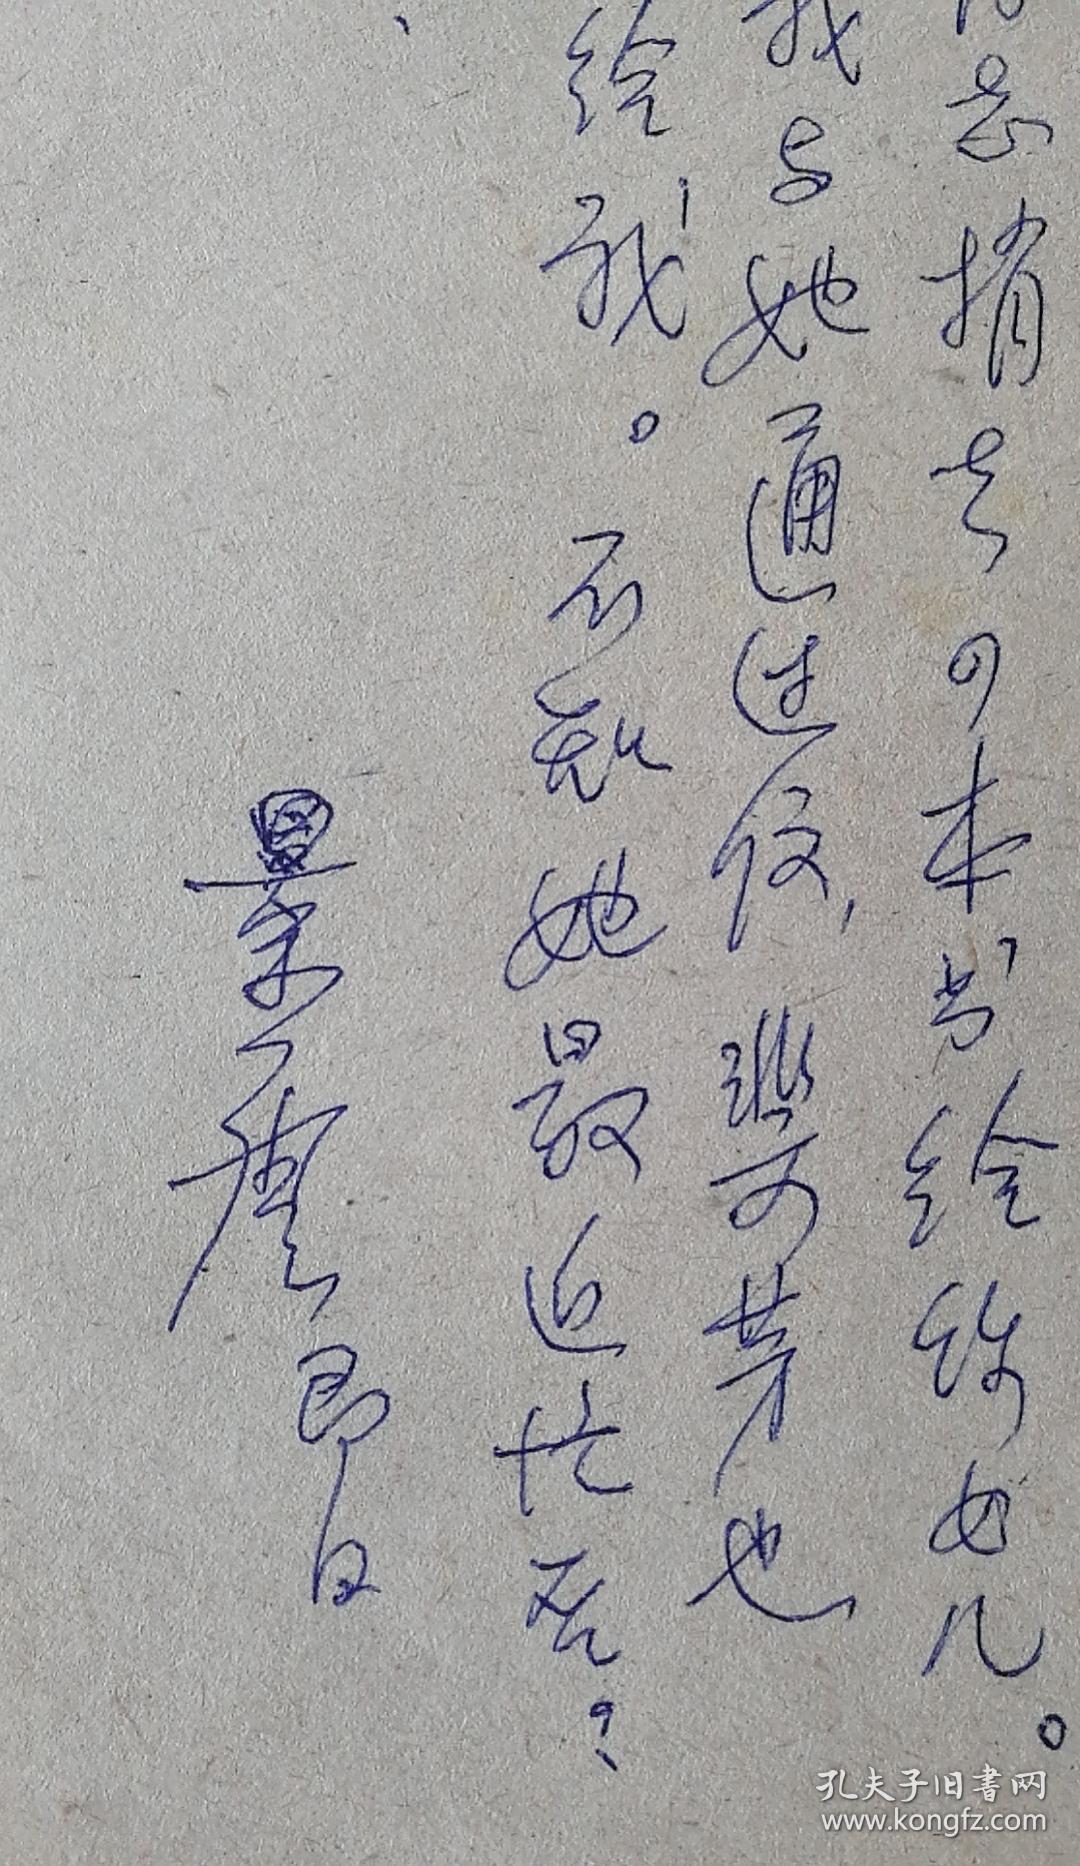 忘捎去本书给女儿。
我与她通过信，芳也
给我。不知她最近忙否？
景唐即日
孔夫子旧书网
www.kongfz.com